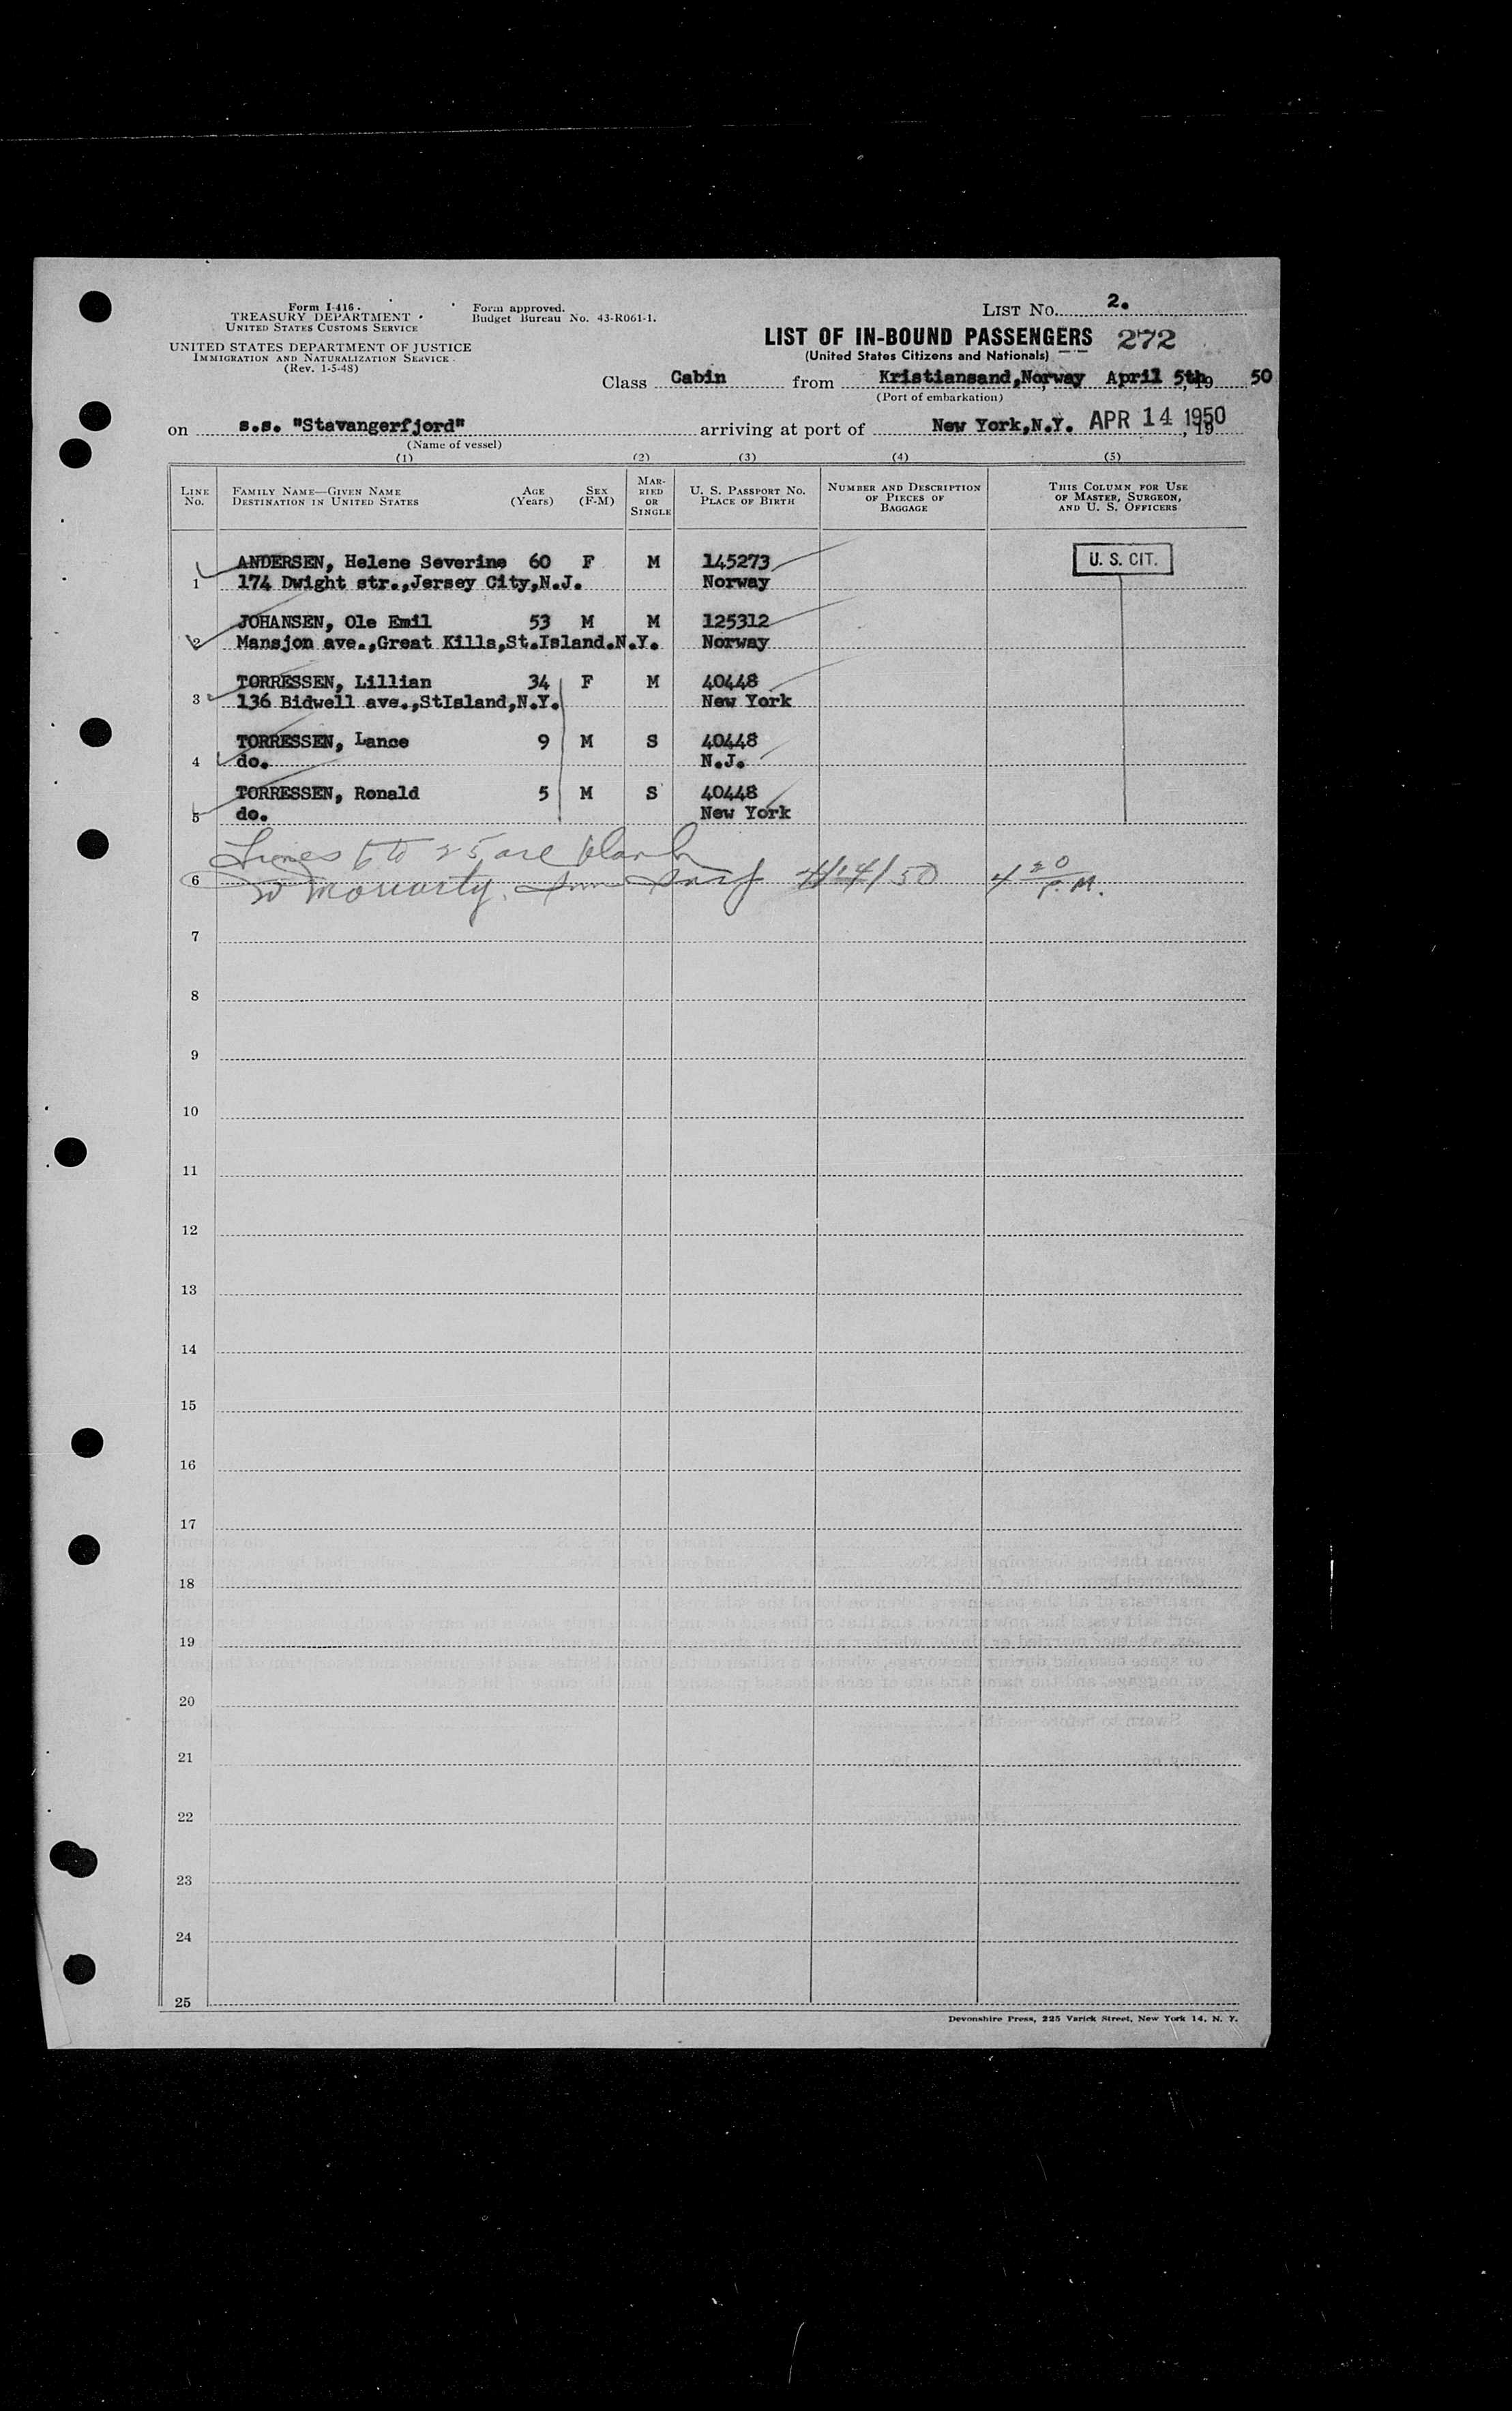 Form I-416.
TREASURY DEPARTMENT
UNITED STATES CUSTOMS SERVICE
UNITED STATES DEPARTMENT OF JUSTICE
IMMIGRATION AND NATURALIZATION SERVICE
(Rev. 1-5-48)
Form approved.
Budget Bureau No. 43-R061-1.
LIST No. 2.
LIST OF IN-BOUND PASSENGERS 272
(United States Citizens and Nationals)
Class Cabin from Kristiansand,Norway April 5th, 19 50
(Port of embarkation)
on s.s. "Stavangerfjord" arriving at port of New York,N.Y. APR 14 1950, 19
(Name of vessel)
(1) (2) (3) (4) (5)
LINE No. FAMILY NAME—GIVEN NAME DESTINATION IN UNITED STATES AGE (Years) SEX (F-M) MARRIED OR SINGLE U. S. PASSPORT NO. PLACE OF BIRTH NUMBER AND DESCRIPTION OF PIECES OF BAGGAGE THIS COLUMN FOR USE OF MASTER, SURGEON, AND U. S. OFFICERS
ANDERSEN, Helene Severine 60 F M 145273 U. S. CIT.
1 174 Dwight str.,Jersey City,N.J. Norway
JOHANSEN, Ole Emil 53 M M 125312
2 Mansjon ave.,Great Kills,St.Island.N.Y. Norway
TORRESSEN, Lillian 34 F M 40448
3 136 Bidwell ave.,StIsland,N.Y. New York
TORRESSEN, Lance 9 M S 40448
4 do. N.J.
TORRESSEN, Ronald 5 M S 40448
5 do. New York
Lines 6 to 25 are blank
6 Moriarty 4/14/50 4 20 P.M.
7
8
9
10
11
12
13
14
15
16
17
18
19
20
21
22
23
24
25
Devonshire Press, 225 Varick Street, New York 14, N. Y.